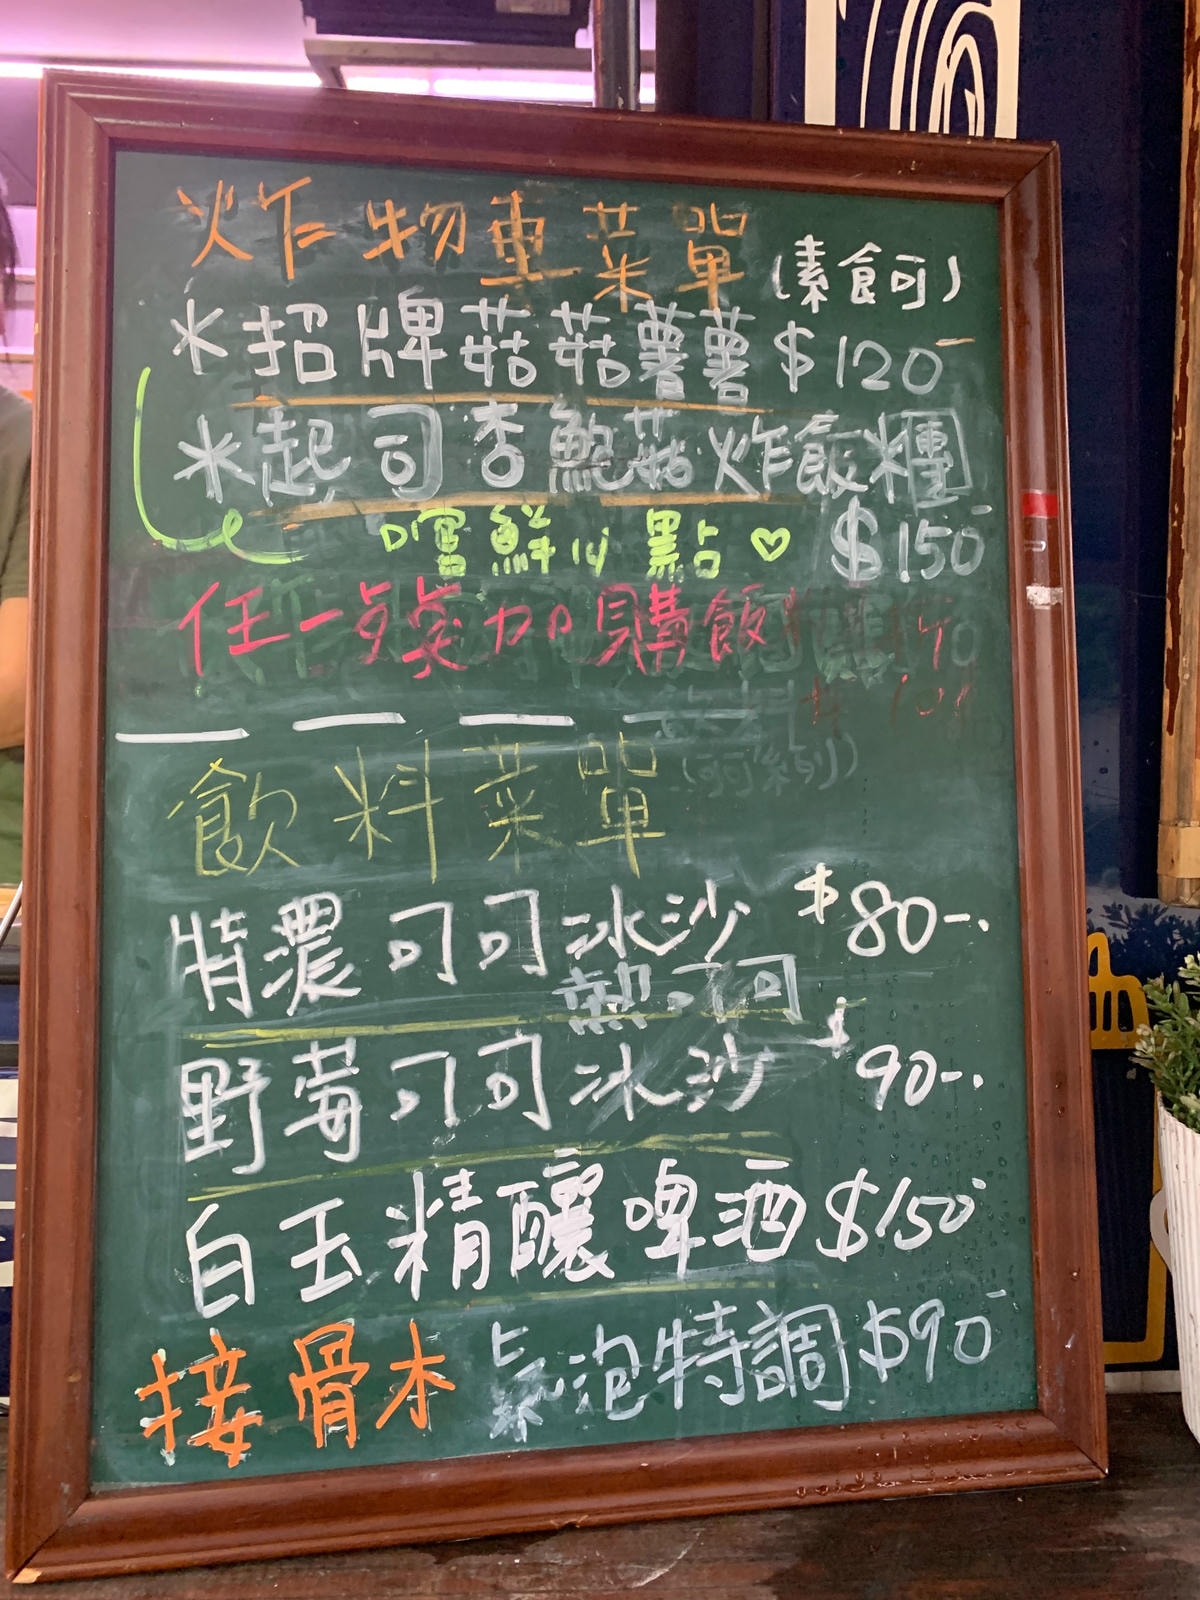 炸物車菜單
(素食可)
*招牌菇菇薯薯 $120-
*起司杏鮑菇炸飯糰
嚐鮮必點♡ $150-
任一 加購飯
飲料菜單
特濃可可冰沙 $80-.
熱可可
野莓可可冰沙 $90-.
白玉精釀啤酒 $150-
接骨木氣泡特調 $90-